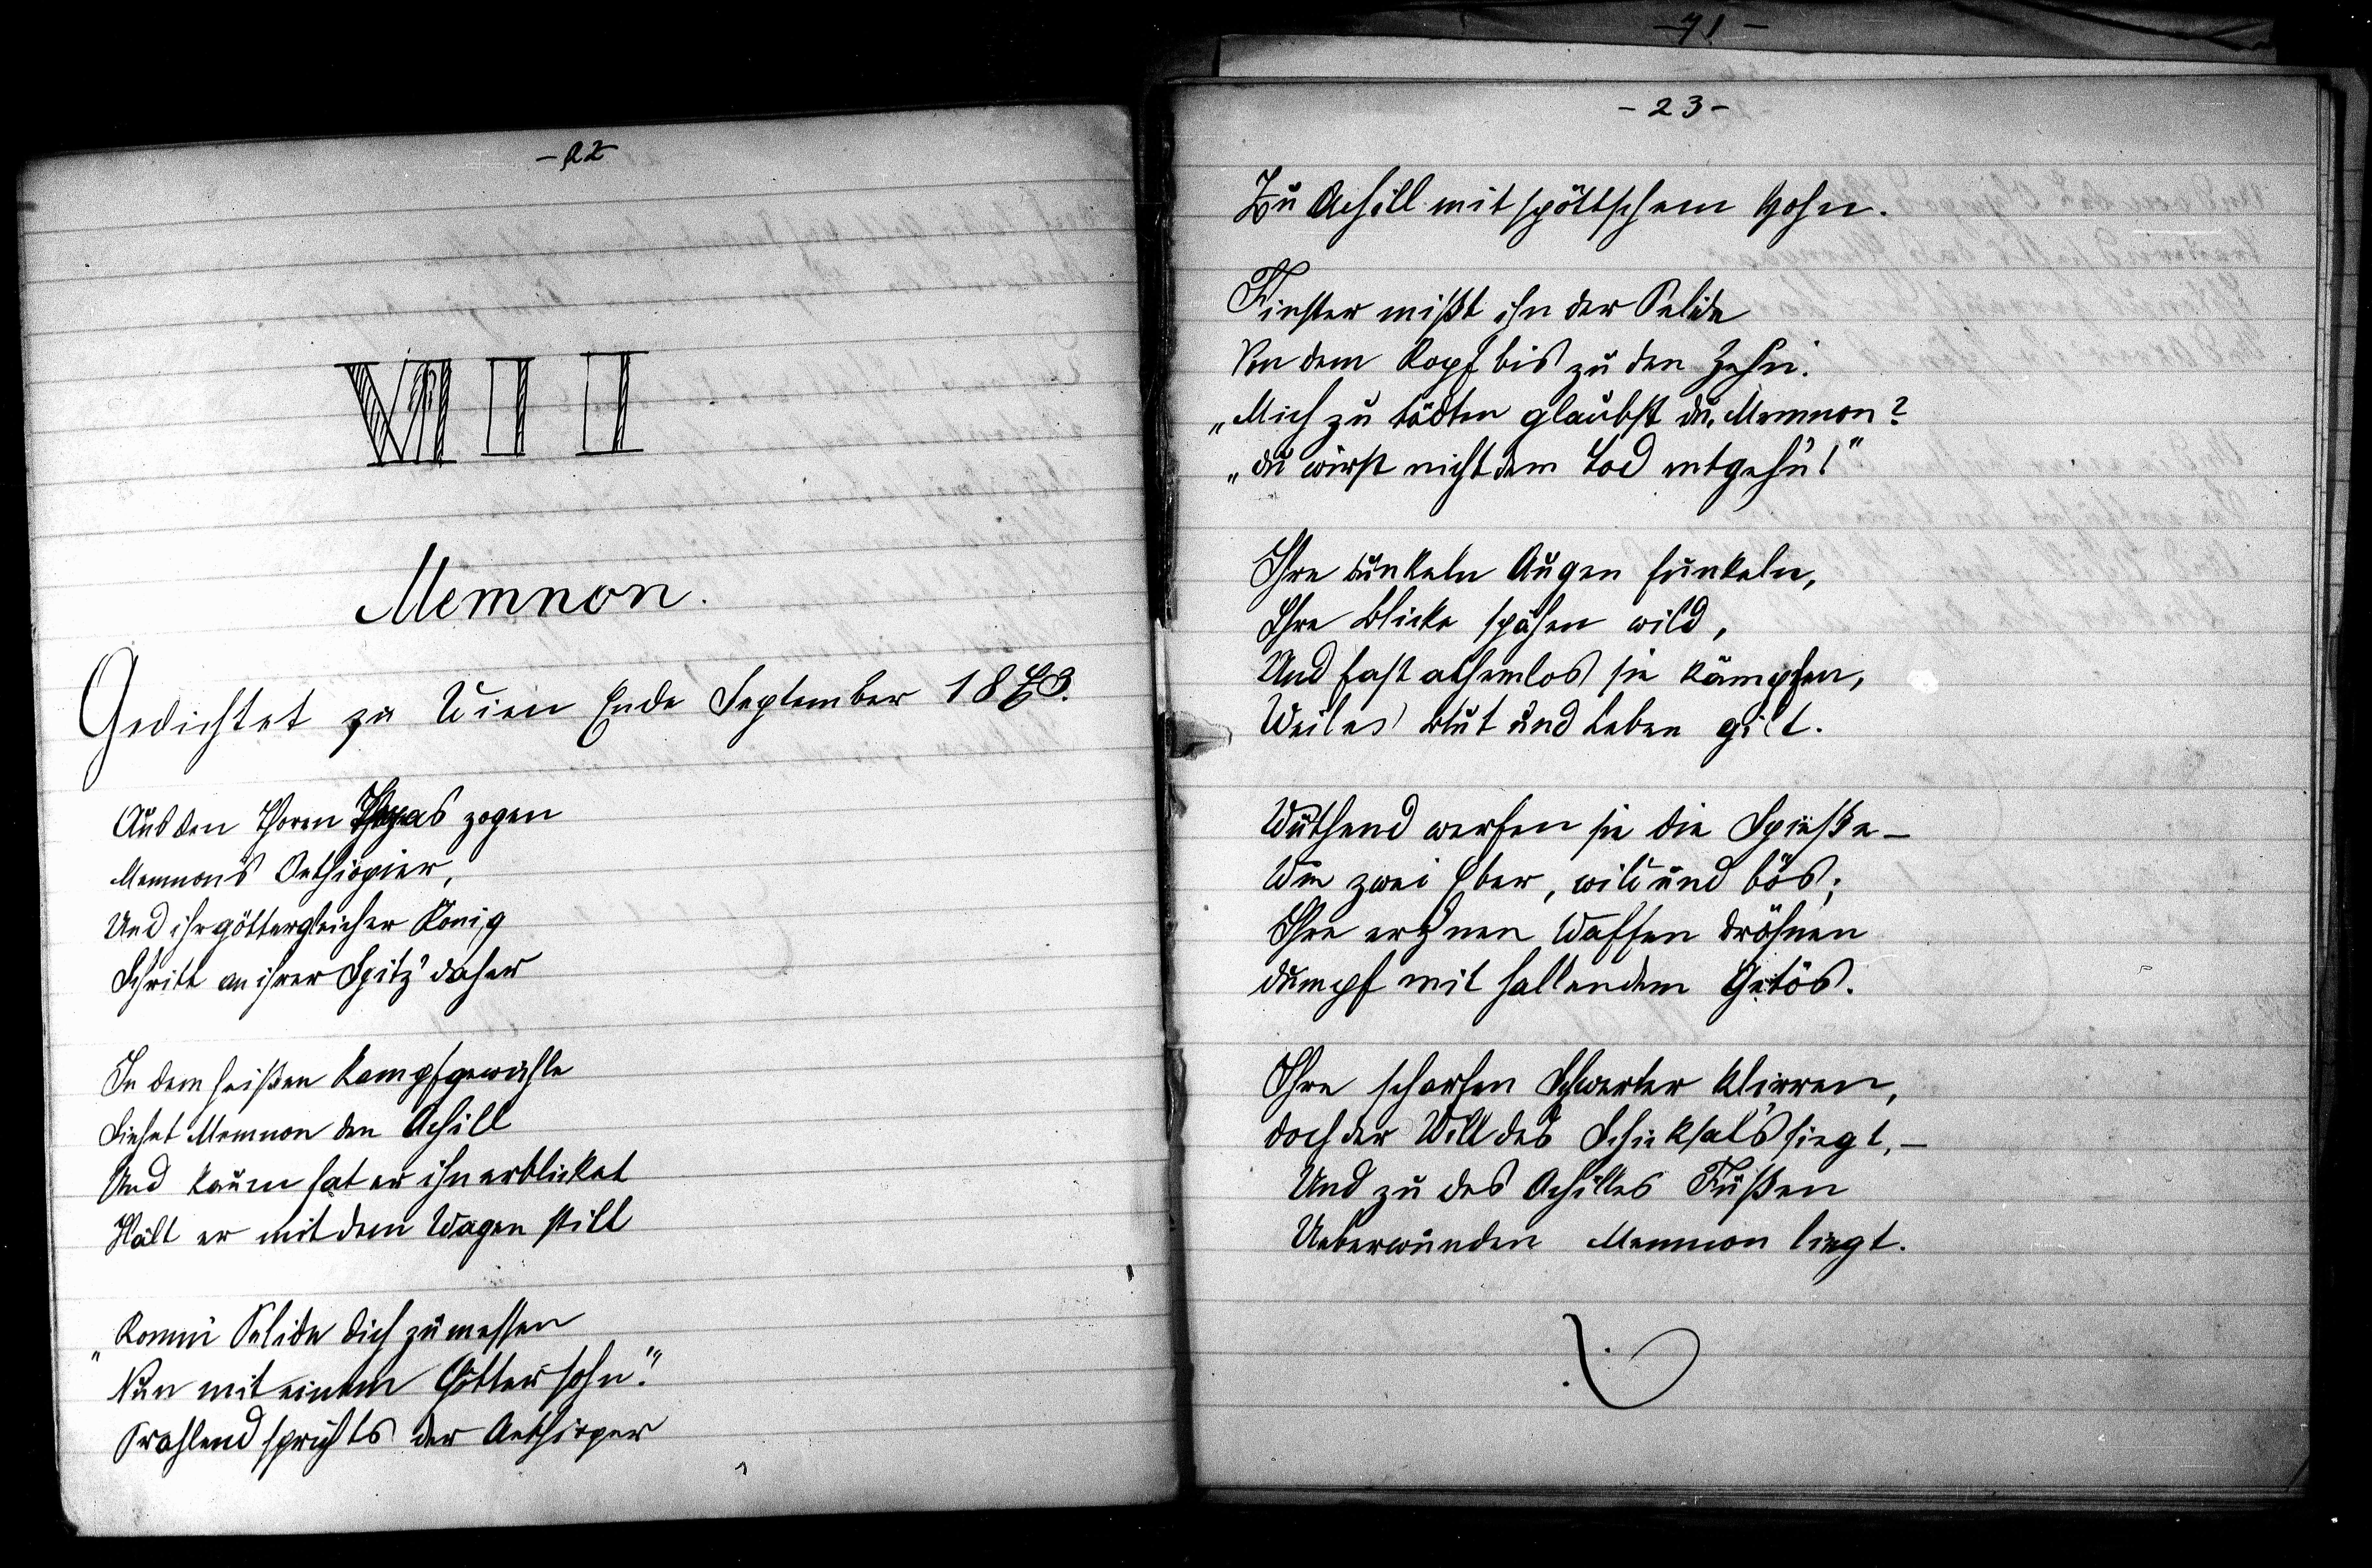 -22-
VIII
Memnon.
Gedichtet zu Wien Ende September 1873.
Aus den Thoren zogen
Memnons Aethiopier,
Und ihr göttergleicher König
Schritt an ihrer Spitz' daher
In dem heißen Kampfgewühle
Siehet Memnon den Achill
Und kaum hat er ihn erblicket
Hält er mit dem Wagen still
„Komm' Pelide dich zu messen
Nun mit einem Göttersohn."
Prahlend sprichts der Aethioper
-71-
-23-
Zu Achill mit spöttschem Hohn.
Finster mißt ihn der Pelide
Von dem Kopf bis zu den Zehn.
„Mich zu tödten glaubst du, Memnon?
„du wirst nicht dem Tod entgehn!"
Ihre dunkeln Augen funkeln,
Ihre Blicke spähen wild,
Und fast athemlos sie kämpfen,
Weil es Blut und Leben gilt.
Wüthend werfen sie die Spieße –
Wie zwei Eber, wild und bös;
Ihre erznen Waffen dröhnen
dumpf mit hallendem Getös.
Ihre scharfen Schwerter klirren,
doch der Will des Schicksals siegt, –
Und zu des Achilles Füßen
Ueberwunden Memnon liegt.